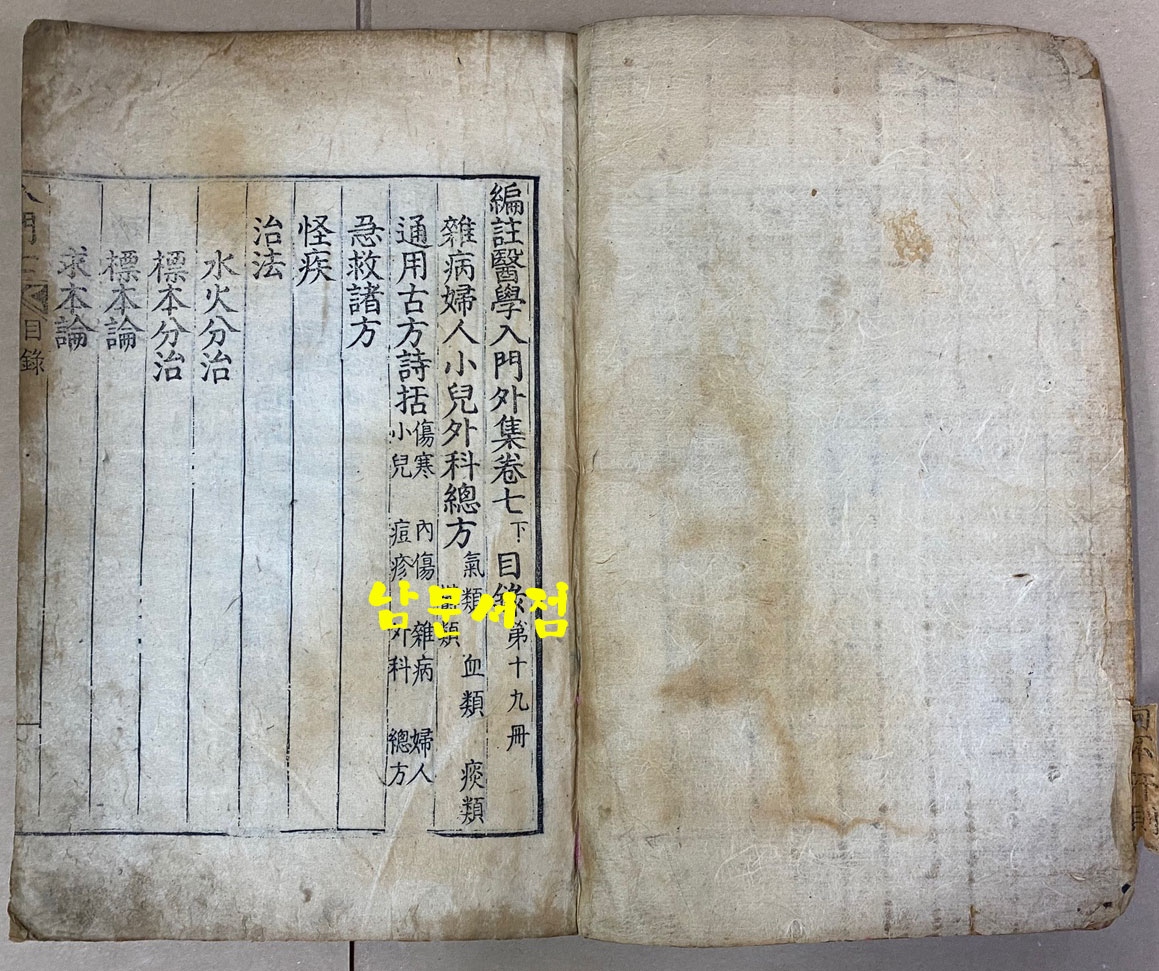 編註醫學入門外集卷七下目錄第十九冊
雜病婦人小兒外科總方
氣類 血類 痰類
類
通用古方詩括
傷寒 內傷 雜病 婦人
小兒 痘疹 外科 總方
急救諸方
怪疾
治法
水火分治
標本分治
標本論
求本論
目錄
남문서점